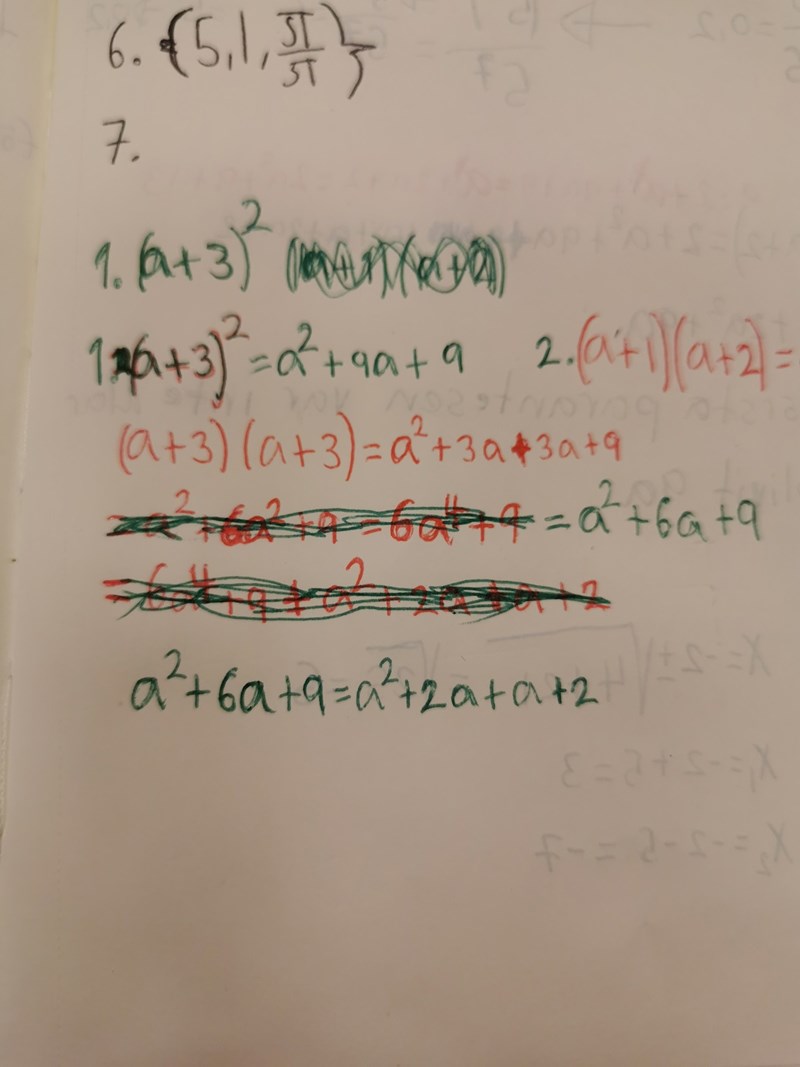 6. {5,1, 5π/5π}
7.
1. (a+3)²
1. (a+3)² = a²+9a+9 2. (a+1)(a+2)=
(a+3)(a+3)=a²+3a+3a+9
= a²+6a+9
a²+6a+9=a²+2a+a+2